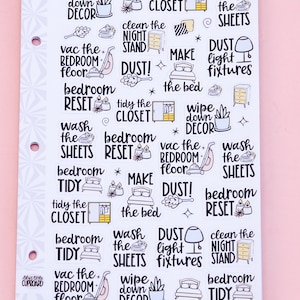 down
DECOR
CLOSET
the
SHEETS
clean the
NIGHT
STAND
vac the
BEDROOM
floor
DUST!
MAKE
the bed
DUST
light
fixtures
bedroom
RESET
tidy the
CLOSET
wipe
down
DECOR
wash
the
SHEETS
bedroom
RESET
vac the
BEDROOM
floor
wash
the
SHEETS
bedroom
TIDY
MAKE
the bed
DUST!
bedroom
RESET
tidy the
CLOSET
bedroom
TIDY
wash
the
SHEETS
DUST
light
fixtures
clean the
NIGHT
STAND
vac the
BEDROOM
floor
wipe
down
DECOR
bedroom
TIDY